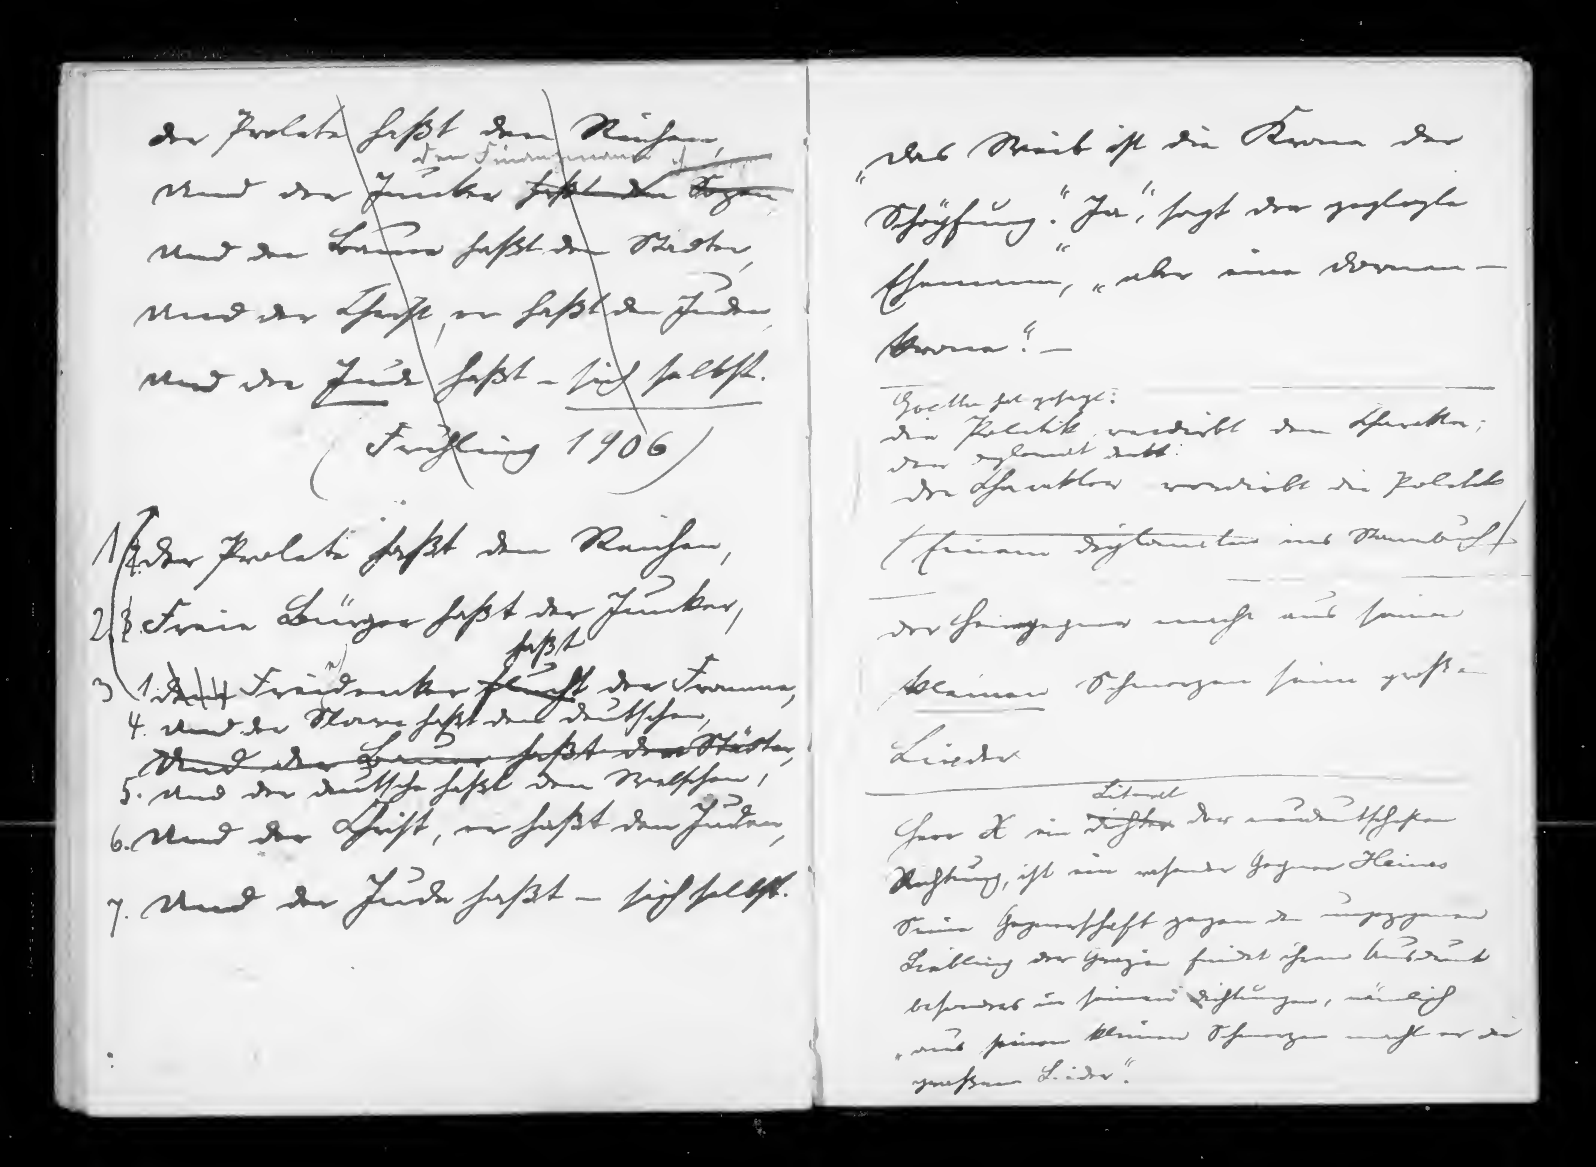 Der Prolete haßt den Reichen,
den Finanzmann
Und der Junker haßt den Sozen
Und der Bauer haßt den Städter,
Und der Christ, er haßt den Juden,
Und der Jude haßt – sich selbst.
(Frühling 1906)
1 2. Der Prolete haßt den Reichen,
2. 3. Freie Bürger haßt der Junker,
haßt
3 1. Den Freidenker flucht der Fromme,
4. Und der Slave haßt den Deutschen,
Und der Bauer haßt den Städter,
5. Und der Deutsche haßt den Welschen,
6. Und der Christ, er haßt den Juden,
7. Und der Jude haßt – sich selbst.
„Das Weib ist die Krone der
Schöpfung“. „Ja“, sagt der geplagte
Ehemann“, „aber eine Dornen–
krone“. –
Goethe hat gesagt:
die Politik verdirbt den Charakter;
der Diplomat denkt:
der Charakter verdirbt die Politik
(Einem Diplomaten ins Stammbuch)
Der Heinegegner macht aus seinen
kleinen Schmerzen seine großen
Lieder
Literat
Herr X ein Dichter der neudeutschesten
Richtung, ist ein rasender Gegner Heines
Seine Gegnerschaft gegen den ungezogenen
Liebling der Grazien findet ihren Ausdruck
besonders in seinen Dichtungen, nämlich
„aus seinen kleinen Schmerzen macht er die
großen Lieder“.